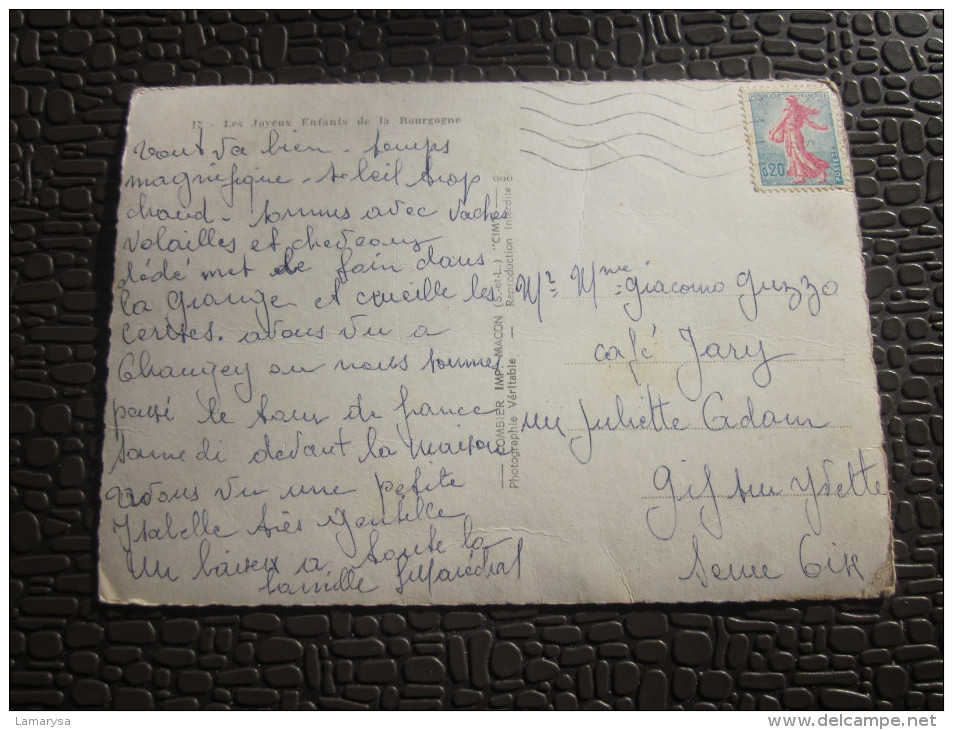 17 - Les Joyeux Enfants de la Bourgogne
tout va bien - temps
magnifique - soleil trop
chaud - sommes avec vaches
volailles et chevreaux
dédé met le foin dans
la grange et cueille les
cerises. avons vu a
Changey ou nous sommes
passé le tour de france
samedi devant la maison
avons vu une petite
Isabelle très gentille
un baiser a toute la
famille Maréchal
COMBIER IMP. MACON (S.-et-L.) "CIM"
Photographie Véritable - Reproduction Interdite
REPUBLIQUE FRANÇAISE
0,20
POSTES
Mr Mme Giacomo Guzzo
café Jary
Juliette Adam
Gif sur Yvette
Seine Oise
Lamarysa
www.delcampe.net